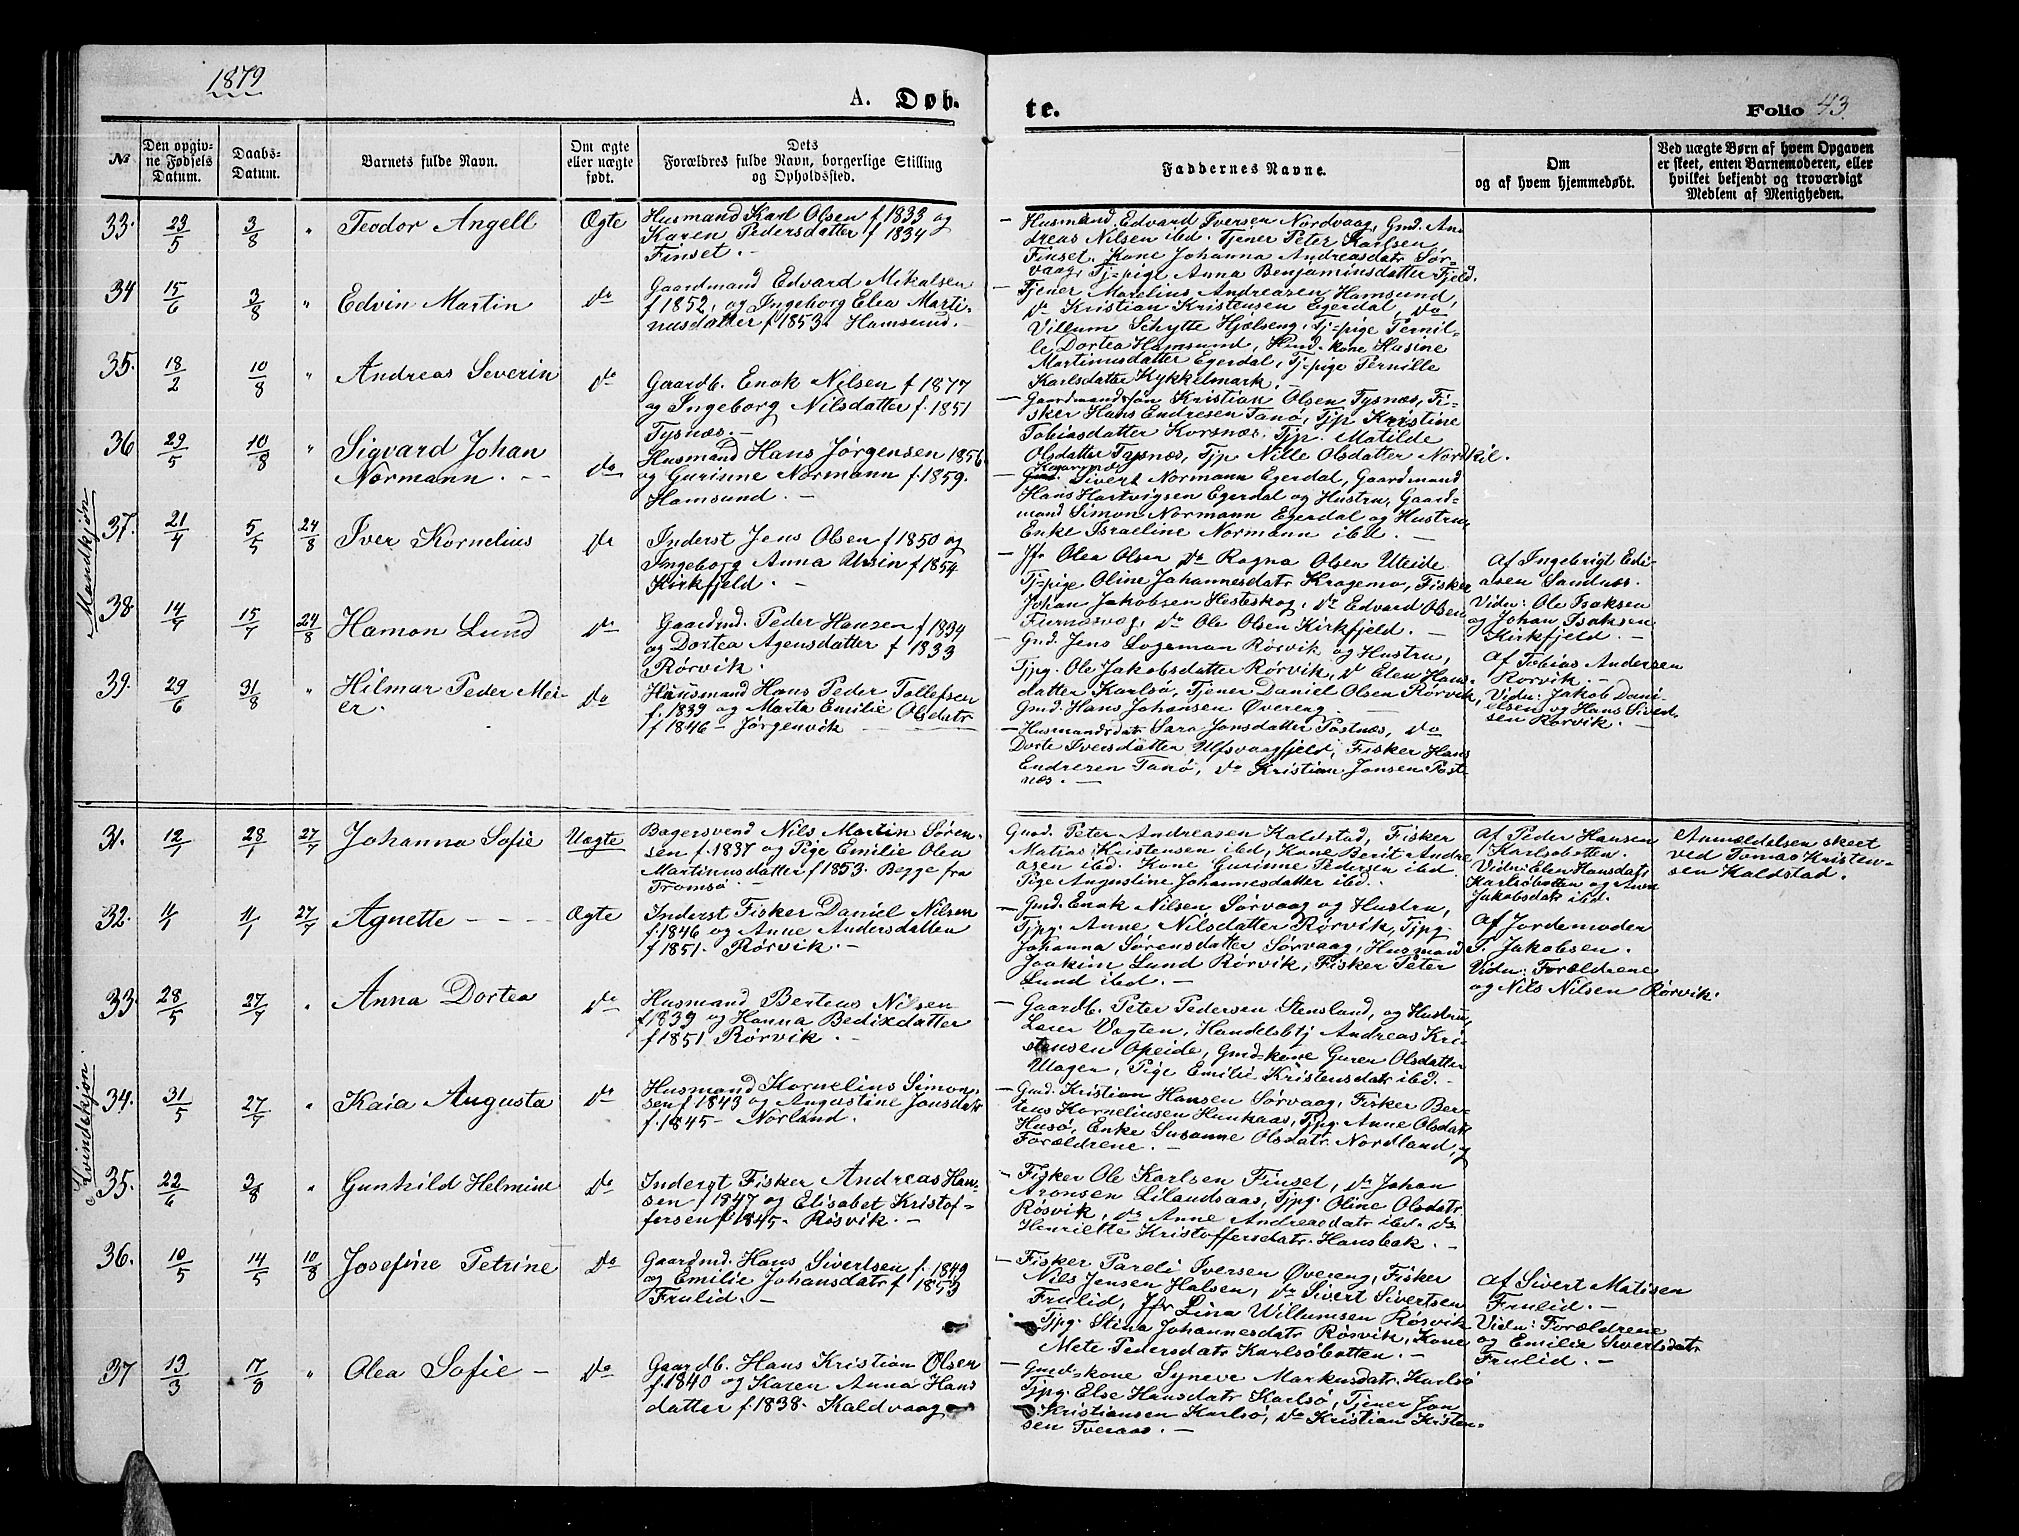 1879
A. Døb-
te.
Folio 43.
№
Den opgiv-
ne Fødsels
Datum.
Daabs-
Datum.
Barnets fulde Navn.
Om ægte
eller uægte
født.
Dets
Forældres fulde Navn, borgerlige Stilling
og Opholdssted.
Faddernes Navne.
Om
og af hvem hjemmedøbt.
Ved uægte Børn af hvem Opgaven
er skeet, enten Barnemoderen, eller
hvilket bekjendt og troværdigt
Medlem af Menigheden.
Mandkjøn
33. 23/5 3/8 " Teodor Angell Ægte
Husmand Karl Olsen f 1833 og
Karen Pedersdatter f 1834
Finset. —
— Husmand Edvard Iversen Nordvaag, Gmd. An-
dreas Nilsen ibd. Tjener Peter Karlsen
Finset. Kone Johanna Andreasdatr Sør-
vaag, Tj-pige Anna Benjaminsdatter Fjeld.
34 15/6 3/8 " Edvin Martin do
Gaardmand Edvard Mikalsen
f 1852, og Ingeborg Elea Marti-
nusdatter f 1853. Hamsund. —
— Tjener Marelius Andreasen Hamsund,
do Kristian Kristensen Egerdal, do
Villum Schytte Hjælseng, Tj-pige Pernil-
le Dortea Hamsund, Hmd-kone Husine
Martinusdatter Egerdal, Tj-pige Pernille
Karlsdatter Kykkelmark. —
35. 18/2 10/8 " Andreas Severin do
Gaardb. Enok Nilsen f 1877
og Ingeborg Nilsdatter f. 1851
Tysnæs. —
— Gaardmandssøn Kristian Olsen Tysnæs, Fi-
sker Hans Endresen Tanø, Tjp Kristine
Tobiasdatter Korsnæs, Tjp. Matilde
Olsdatter Tysnæs, Tjp Nille Olsdatter Nordkil.
36 29/5 10/8 " Sigvard Johan
Normann. — do
Husmand Hans Jørgensen 1856
og Gurinne Normann f. 1859.
Hamsund. —
Sivert Normann Egerdal, Gaardmand
Hans Hartvigsen Egerdal og Hustru, Gaard-
mand Simon Normann Egerdal og Hustru,
Enke Israeline Normann ibd. —
37. 21/4 5/5 24/8 Iver Kornelius do
Inderst Jens Olsen f 1850 og
Ingeborg Anna Ursin f 1854
Kirkfjeld. —
— Jfr Olea Olsen do Ragna Olsen Uteide
Tj-pige Oline Johannesdatr Kragemo, Fisker
Johan Jakobsen Hesteskog, do Edvard Olsen
do Ole Olsen Kirkfjeld. —
af Ingebrigt Edi-
asen Sandnæs.
Vidn: Ole Isaksen
og Johan Isaksen
Kirkfjeld. —
38. 14/7 15/7 24/8 Hamon Lund do
Gaardmd. Peder Hansen f 1834
og Dortea Agensdatter f 1833
Rørvik.
— Gmd. Jens Logeman Rørvik og Hustru,
Tjpg. Ole Jakobsdatter Rørvik, do Elen Hans-
datter Karlsø, Tjener Daniel Olsen Rørvik,
Gmd. Hans Johansen Øvereng.
af Tobias Andersen
Rørvik. —
Vidn: Jakob Dani-
elsen og Hans Sivert-
sen Rørvik. —
39. 29/6 31/8 " Hilmar Peder Mei-
er. do
Husmand Hans Peder Tollefsen
f. 1839 og Marta Emilie Olsdatr
f 1846 — Jørgenvik
— Husmandsdatr Sara Jonsdatter Postnæs, do
Dorte Iversdatter Ulfsvaagfjeld, Fisker Hans
Endresen Tanø, do Kristian Jonsen Post-
næs. —
Kvindekjøn.
31. 12/1 28/1 27/7 Johanna Sofie Uægte
Bagersvend Nils Martin Søren-
sen f. 1837 og Pige Emilie Olea
Martinusdatter f 1853. Begge fra
Tromsø. —
Gmd. Peter Andreasen Kaldstad, Fisker
Matias Kristensen ibd, Kone Berit Andre
asen ibd. Kone Gurinne Pedersen ibd.
Pige Augustine Johannesdatter ibd. —
af Peder Hansen
Karlsøbotten.
Vidn: Elen Hansdatr
Karlsøbotten og Anne
Jakobsdatr ibd.
Anmeldelsen skeet
ved Tomas Kristen-
sen Kaldstad.
32. 4/1 11/1 27/7 Agnette — Ægte
Inderst Fisker Daniel Nilsen
f. 1846 og Anne Andersdatter
f 1851. Rørvik. —
— Gmd. Enok Nilsen Sørvaag og Hustru,
Tjpg. Anne Nilsdatter Rørvik, Tjpg.
Johanna Sørensdatter Sørvaag, Husmand
Joakim Lund Rørvik, Fisker Peter
Lund ibd. —
af Jordemoder
T. Jakobsen.
Vidn: Forældrene
og Nils Nilsen Rørvik.
33. 28/5 27/7 " Anna Dortea do
Husmand Berteus Nilsen
f 1839 og Hanna Bedixdatter
f 1851 Rørvik. —
— Gaardb. Peter Pedersen Stensland, og Hustru,
Lærer Vogten, Handelsbtj Andreas Kri-
stensen Opeide, Gmd-kone Gurer Olsdatter
Ulagen, Pige Emilie Kristensdatr ibd. —
34. 31/5 27/7 " Kaia Augusta do
Husmand Kornelius Simon-
sen f 1843 og Augustine Jonsdatr
f. 1845 — Norland.
— Gmd. Kristian Hansen Sørvaag, Fisker Ber-
teus Kornelinsen Haukaas, Tjpg. Anne Olsdatr
Husø, Enke Susanne Olsdatr. Nordland, og
Forældrene. —
35. 22/6 3/8 " Gunhild Helmine do
Inderst Fisker Andreas Han-
sen f 1847 og Elisabet Kristof-
fersen f 1845. Røsvik. —
— Fisker Ole Karlsen Finset, do Johan
Aronsen Lilandsaas, Tjpg. Oline Olsdatr
Røsvik, do Anne Andreasdatr ibd. do
Henriette Kristoffersdatr. Hansbak. —
36. 10/5 14/5 10/8 Josefine Petrine do
Gaardmd. Hans Sivertsen f. 1849
og Emilie Johansdatr f 1853
Frulid. —
— Fisker Pareli Iversen Øvereng, Fisker
Nils Jensen Halsen, do Sivert Sivertsen
Frulid, Jfr Lina Willumsen Røsvik
Tjpg. Stina Johannesdatr Rørvik, Kone
Mete Pedersdatr Karlsøbotten. —
af Sivert Matisen
Frulid. —
Vidn: Forældrene
og Emilie Sivertsdatr
Frulid. —
37 13/3 17/8 " Olea Sofie — do
Gaardb. Hans Kristian Olsen
f. 1840 og Karen Anna Hans
datter f. 1838. Kaldvaag
— Gmd-kone Syneve Markusdatr. Karlsø
Tjpg. Else Hansdatr Karlsø, Tjener Jon
Kristiansen Karlsø, do Kristian Kristen-
sen Tveraas. —